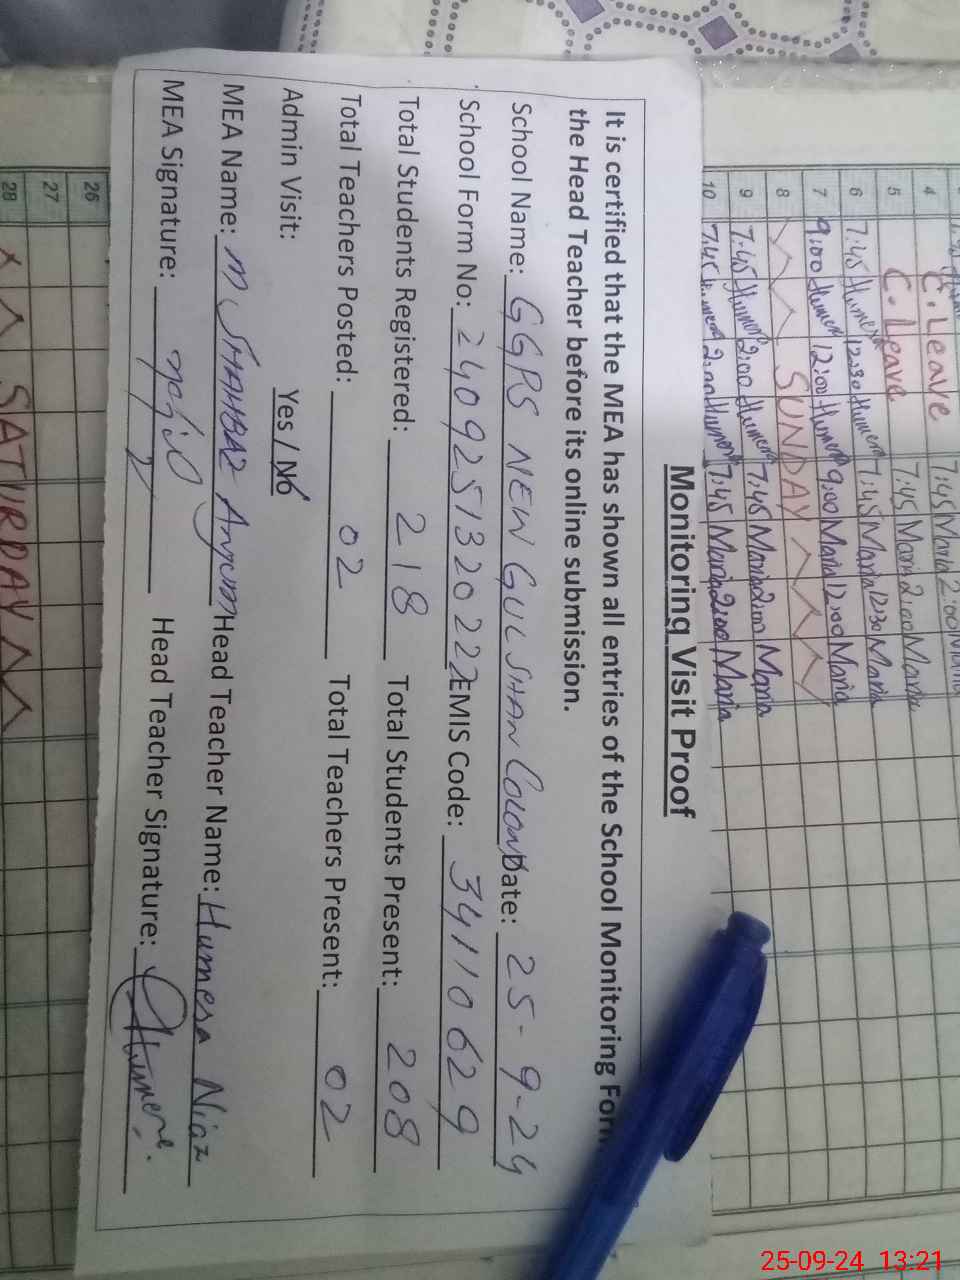 Monitoring Visit Proof
It is certified that the MEA has shown all entries of the School Monitoring Form
the Head Teacher before its online submission.
School Name: GGPS NEW GULSHAN Colony Date: 25-9-24
School Form No: 240925132022 EMIS Code: 34110629
Total Students Registered: 218 Total Students Present: 208
Total Teachers Posted: 02 Total Teachers Present: 02
Admin Visit: Yes / No
MEA Name: M SHAHBAZ Anjum Head Teacher Name: Humera Niaz
MEA Signature: Head Teacher Signature: Humera.
4 C. Leave 7:45 Maria 2:00 Maria
5 C. Leave 7:45 Maria 2:00 Maria
6 7:45 Humera 12:30 Humera 7:45 Maria 12:30 Maria
7 9:00 Humera 12:00 Humera 9:00 Maria 12:00 Maria
8 SUNDAY
9 7:45 Humera 2:00 Humera 7:45 Maria 2:00 Maria
10 7:45 Humera 2:00 Humera 7:45 Maria 2:00 Maria
26
27
28 SATURDAY
25-09-24 13:21